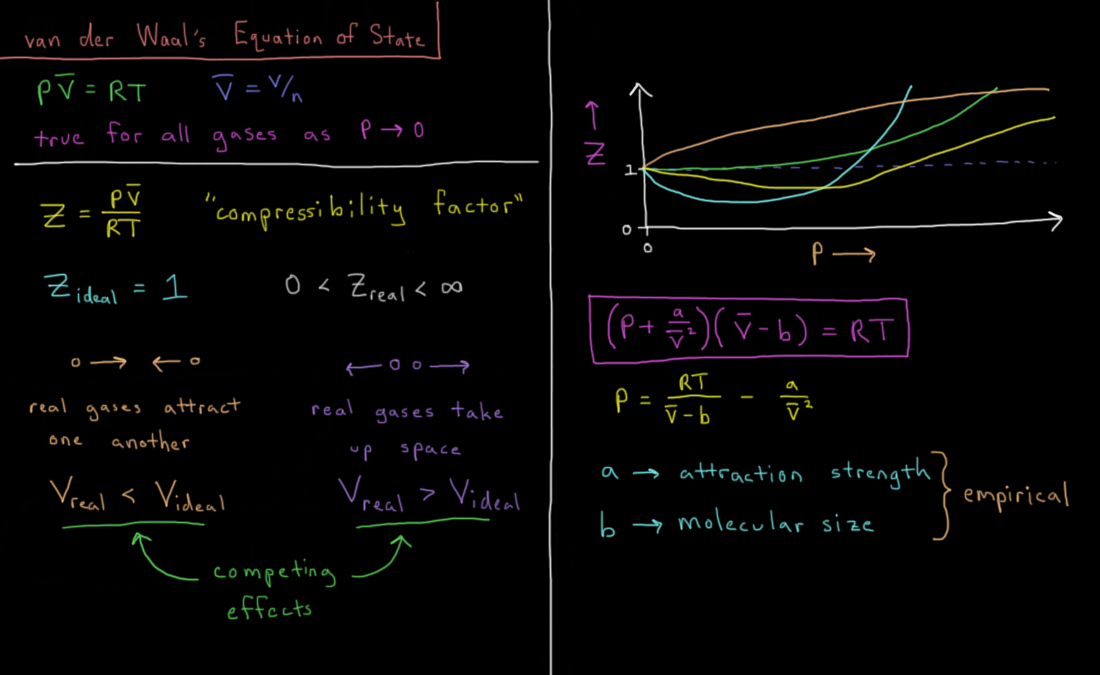 van der Waal's Equation of State
PV̅ = RT V̅ = V/n
true for all gases as P → 0
Z = PV̅/RT "compressibility factor"
Z ideal = 1 0 < Z real < ∞
o → ← o
← o o →
real gases attract
one another
real gases take
up space
V real < V ideal
V real > V ideal
competing
effects
↑
Z
1
0
0
P →
(P + a/V̅²)(V̅ - b) = RT
P = RT/(V̅ - b) - a/V̅²
a → attraction strength
b → molecular size
} empirical